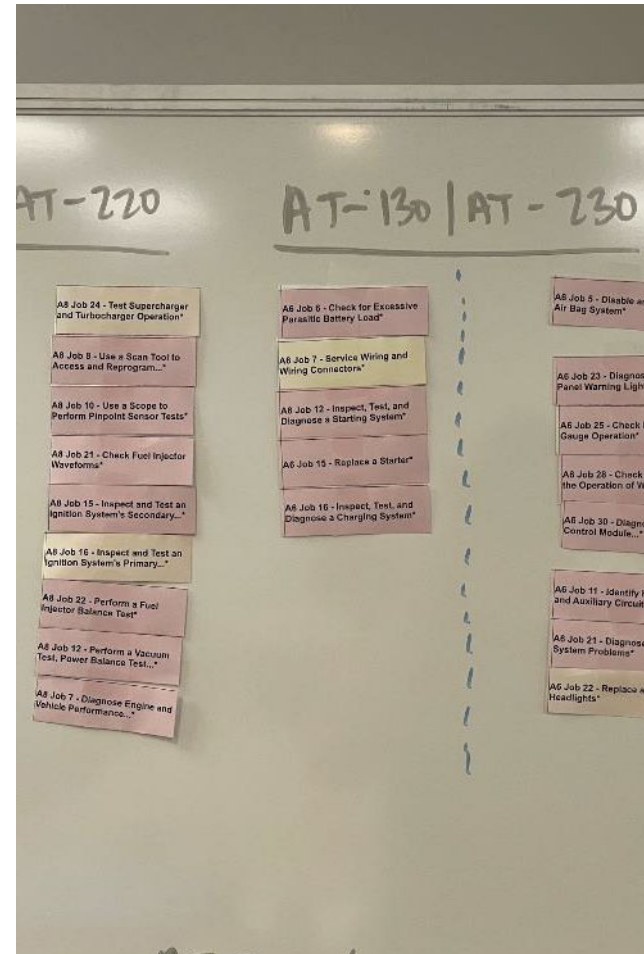 AT-220
A8 Job 24 - Test Supercharger
and Turbocharger Operation*
A8 Job 8 - Use a Scan Tool to
Access and Reprogram...*
A8 Job 10 - Use a Scope to
Perform Pinpoint Sensor Tests*
A8 Job 21 - Check Fuel Injector
Waveforms*
A8 Job 15 - Inspect and Test an
Ignition System's Secondary...*
A8 Job 16 - Inspect and Test an
Ignition System's Primary...*
A8 Job 22 - Perform a Fuel
Injector Balance Test*
A8 Job 12 - Perform a Vacuum
Test, Power Balance Test...*
A8 Job 7 - Diagnose Engine and
Vehicle Performance...*
AT-130 | AT-230
A6 Job 6 - Check for Excessive
Parasitic Battery Load*
A6 Job 7 - Service Wiring and
Wiring Connectors*
A6 Job 12 - Inspect, Test, and
Diagnose a Starting System*
A6 Job 15 - Replace a Starter*
A6 Job 16 - Inspect, Test, and
Diagnose a Charging System*
A6 Job 5 - Disable
Air Bag System*
A6 Job 23 -
Panel Warning
A6 Job 25 - Check
Gauge Operation*
A6 Job 28 - Check
the Operation of
A6 Job 30 -
Control Module...*
A6 Job 11 - Identify
and Auxiliary
A6 Job 21 - Diagnose
System Problems*
A6 Job 22 - Replace
Headlights*